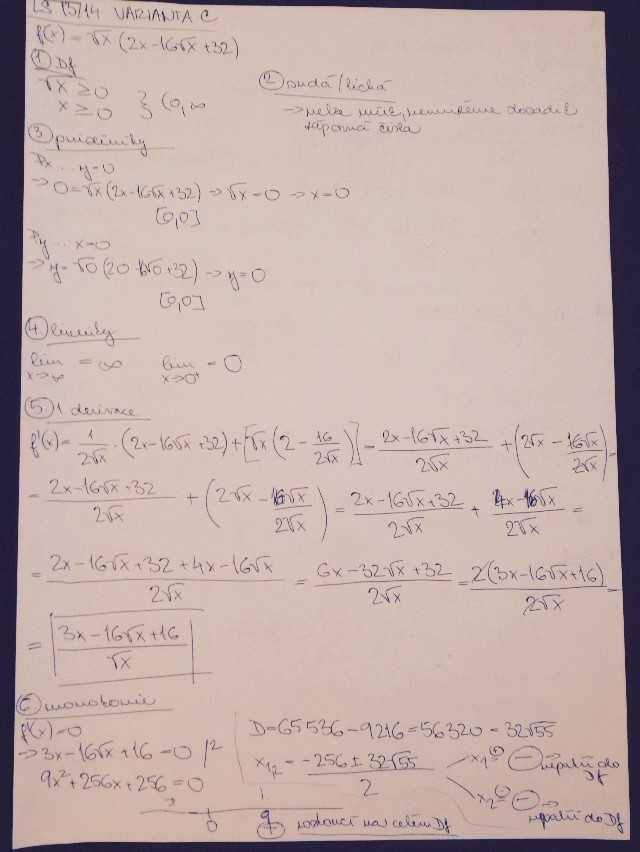 LS 13/14 VARIANTA C
f(x) = √x (2x-16√x+32)
① Df
√x ≥ 0
x ≥ 0 } (0, ∞
② sudá/lichá
→ nelze určit, nemůžeme dosadit
záporná čísla
③ průsečíky
Px ... y=0
→ 0=√x(2x-16√x+32) → √x=0 → x=0
[0,0]
Py ... x=0
→ y=√0(2·0-16√0+32) → y=0
[0,0]
④ limity
lim x→∞ = ∞ lim x→0+ = 0
⑤ 1 derivace
f'(x)= 1/2√x · (2x-16√x+32)+[√x(2 - 16/2√x)] = 2x-16√x+32/2√x + (2√x - 16√x/2√x) =
= 2x-16√x+32/2√x + (2√x - 16√x/2√x) = 2x-16√x+32/2√x + 4x-16√x/2√x =
= 2x-16√x+32+4x-16√x/2√x = 6x-32√x+32/2√x = 2(3x-16√x+16)/2√x =
= 3x-16√x+16/√x
⑥ monotonie
f'(x)=0
→ 3x-16√x+16=0 /²
9x²+256x+256=0
D=65536-9216=56320=32√55
x₁,₂ = -256 ± 32√55/2
x₁= ⊖ → nepatří do Df
x₂= ⊖ → nepatří do Df
0 9
+ rostoucí na celém Df